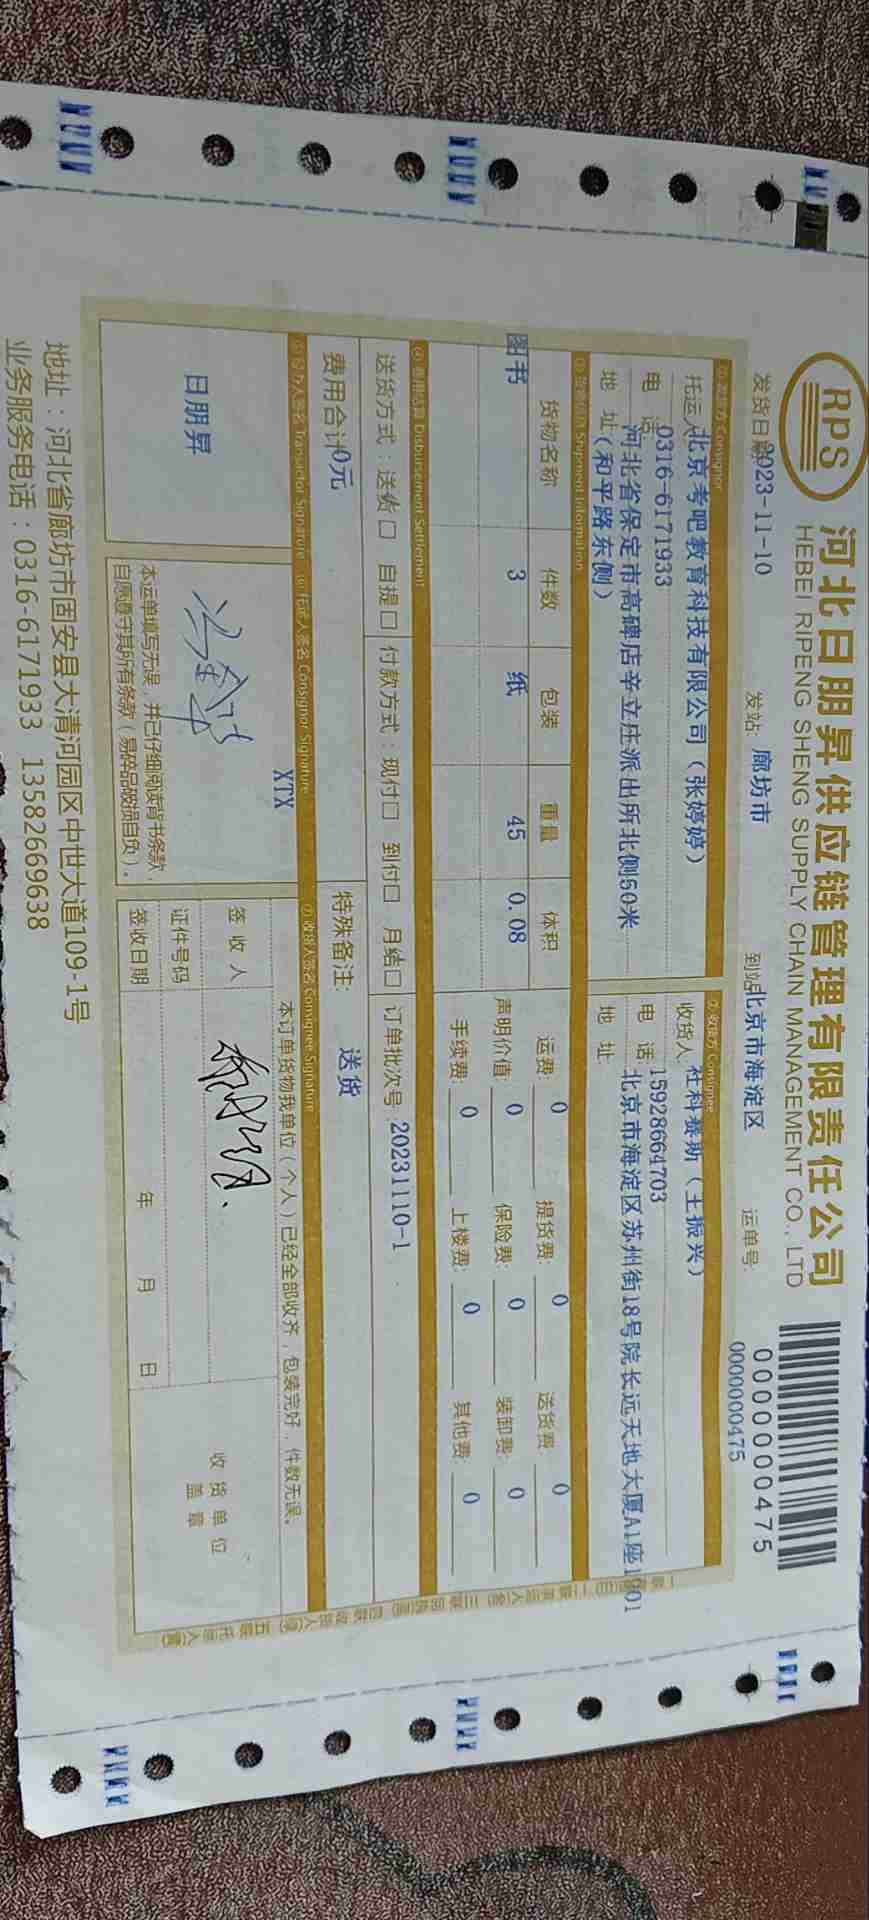 RPS
河北日朋昇供应链管理有限责任公司
HEBEI RIPENG SHENG SUPPLY CHAIN MANAGEMENT CO., LTD
0000000475
发货日期 2023-11-10 发站: 廊坊市 到站 北京市海淀区 运单号: 0000000475
①发货方 Consignor ②收货方 Consignee
托运人 北京考吧教育科技有限公司（张婷婷） 收货人 社科赛斯（王振兴）
电 话 0316-6171933 电 话 15928664703
地 址 河北省保定市高碑店辛立庄派出所北侧50米（和平路东侧） 地 址 北京市海淀区苏州街18号院长远天地大厦A1座1001
③货物信息 Shipment Information
货物名称 件数 包装 重量 体积 运费: 0 提货费: 0 送货费: 0
图书 3 纸 45 0.08 声明价值: 0 保险费: 0 装卸费: 0
手续费: 0 上楼费: 0 其他费: 0
④费用结算 Disbursement Settlement
送货方式：送货□ 自提□ 付款方式：现付□ 到付□ 月结□ 订单批次号 20231110-1
费用合计 0元 特殊备注: 送货
⑤经办人签名 Transactor Signature ⑥托运人签名 Consignor Signature ⑦收货人签名 Consignee Signature
XTX
日朋昇
本订单货物我单位（个人）已经全部收齐，包装完好，件数无误。
签 收 人
证件号码
签收日期 年 月 日
收货单位
盖 章
本运单填写无误，并已仔细阅读背书条款，
自愿遵守其所有条款（易碎品破损自负）。
地址：河北省廊坊市固安县大清河园区中世大道109-1号
业务服务电话：0316-6171933 13582669638